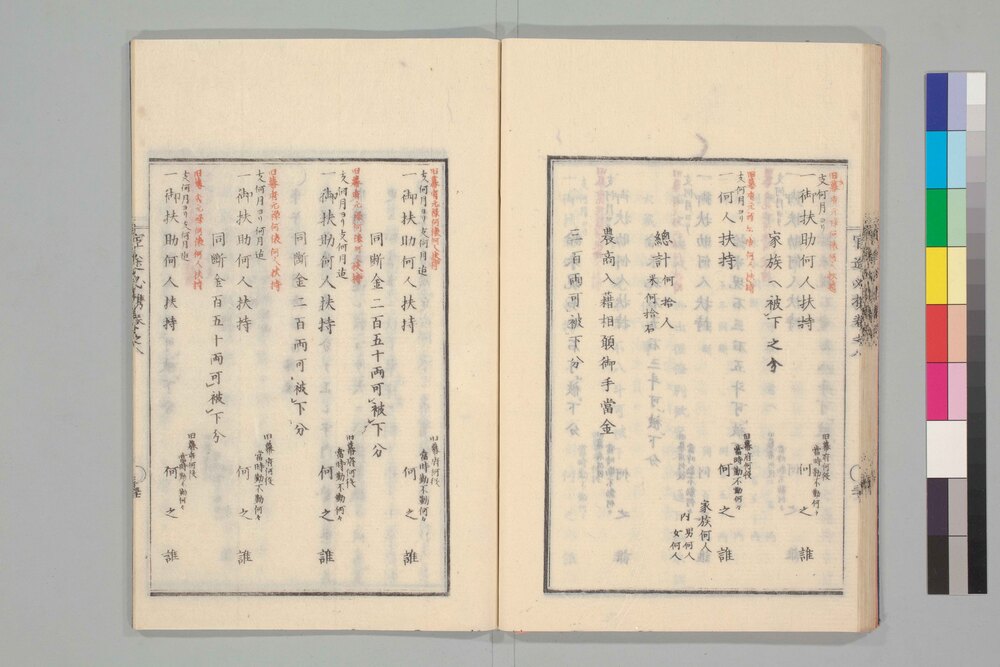 旧幕府元禄何俵何人扶持
支何月ヨリ
一御扶助何人扶持
旧幕府何役
當時勤不勤何々
何之誰
家族ヘ被下之分
支何月ヨリ
一何人扶持
旧幕府何役
當時勤不勤何々
何之誰
家族何人
内 男何人
女何人
總計 何拾人
米何拾石
農商入藉相願御手當金
三百両可被下分
旧幕府元禄何俵何人扶持
支何月ヨリ支何月迠
一御扶助何人扶持
旧幕府何役
當時勤不勤何々
何之誰
同断金二百五十両可被下分
旧幕府元禄何俵何人扶持
支何月ヨリ支何月迠
一御扶助何人扶持
旧幕府何役
當時勤不勤何々
何之誰
同断金二百両可被下分
旧幕府元禄何俵何人扶持
支何月ヨリ何月迠
一御扶助何人扶持
旧幕府何役
當時勤不勤何々
何之誰
同断金百五十両可被下分
旧幕府元禄何俵何人扶持
一御扶助何人扶持
旧幕府何役
當時勤不勤何々
何之誰